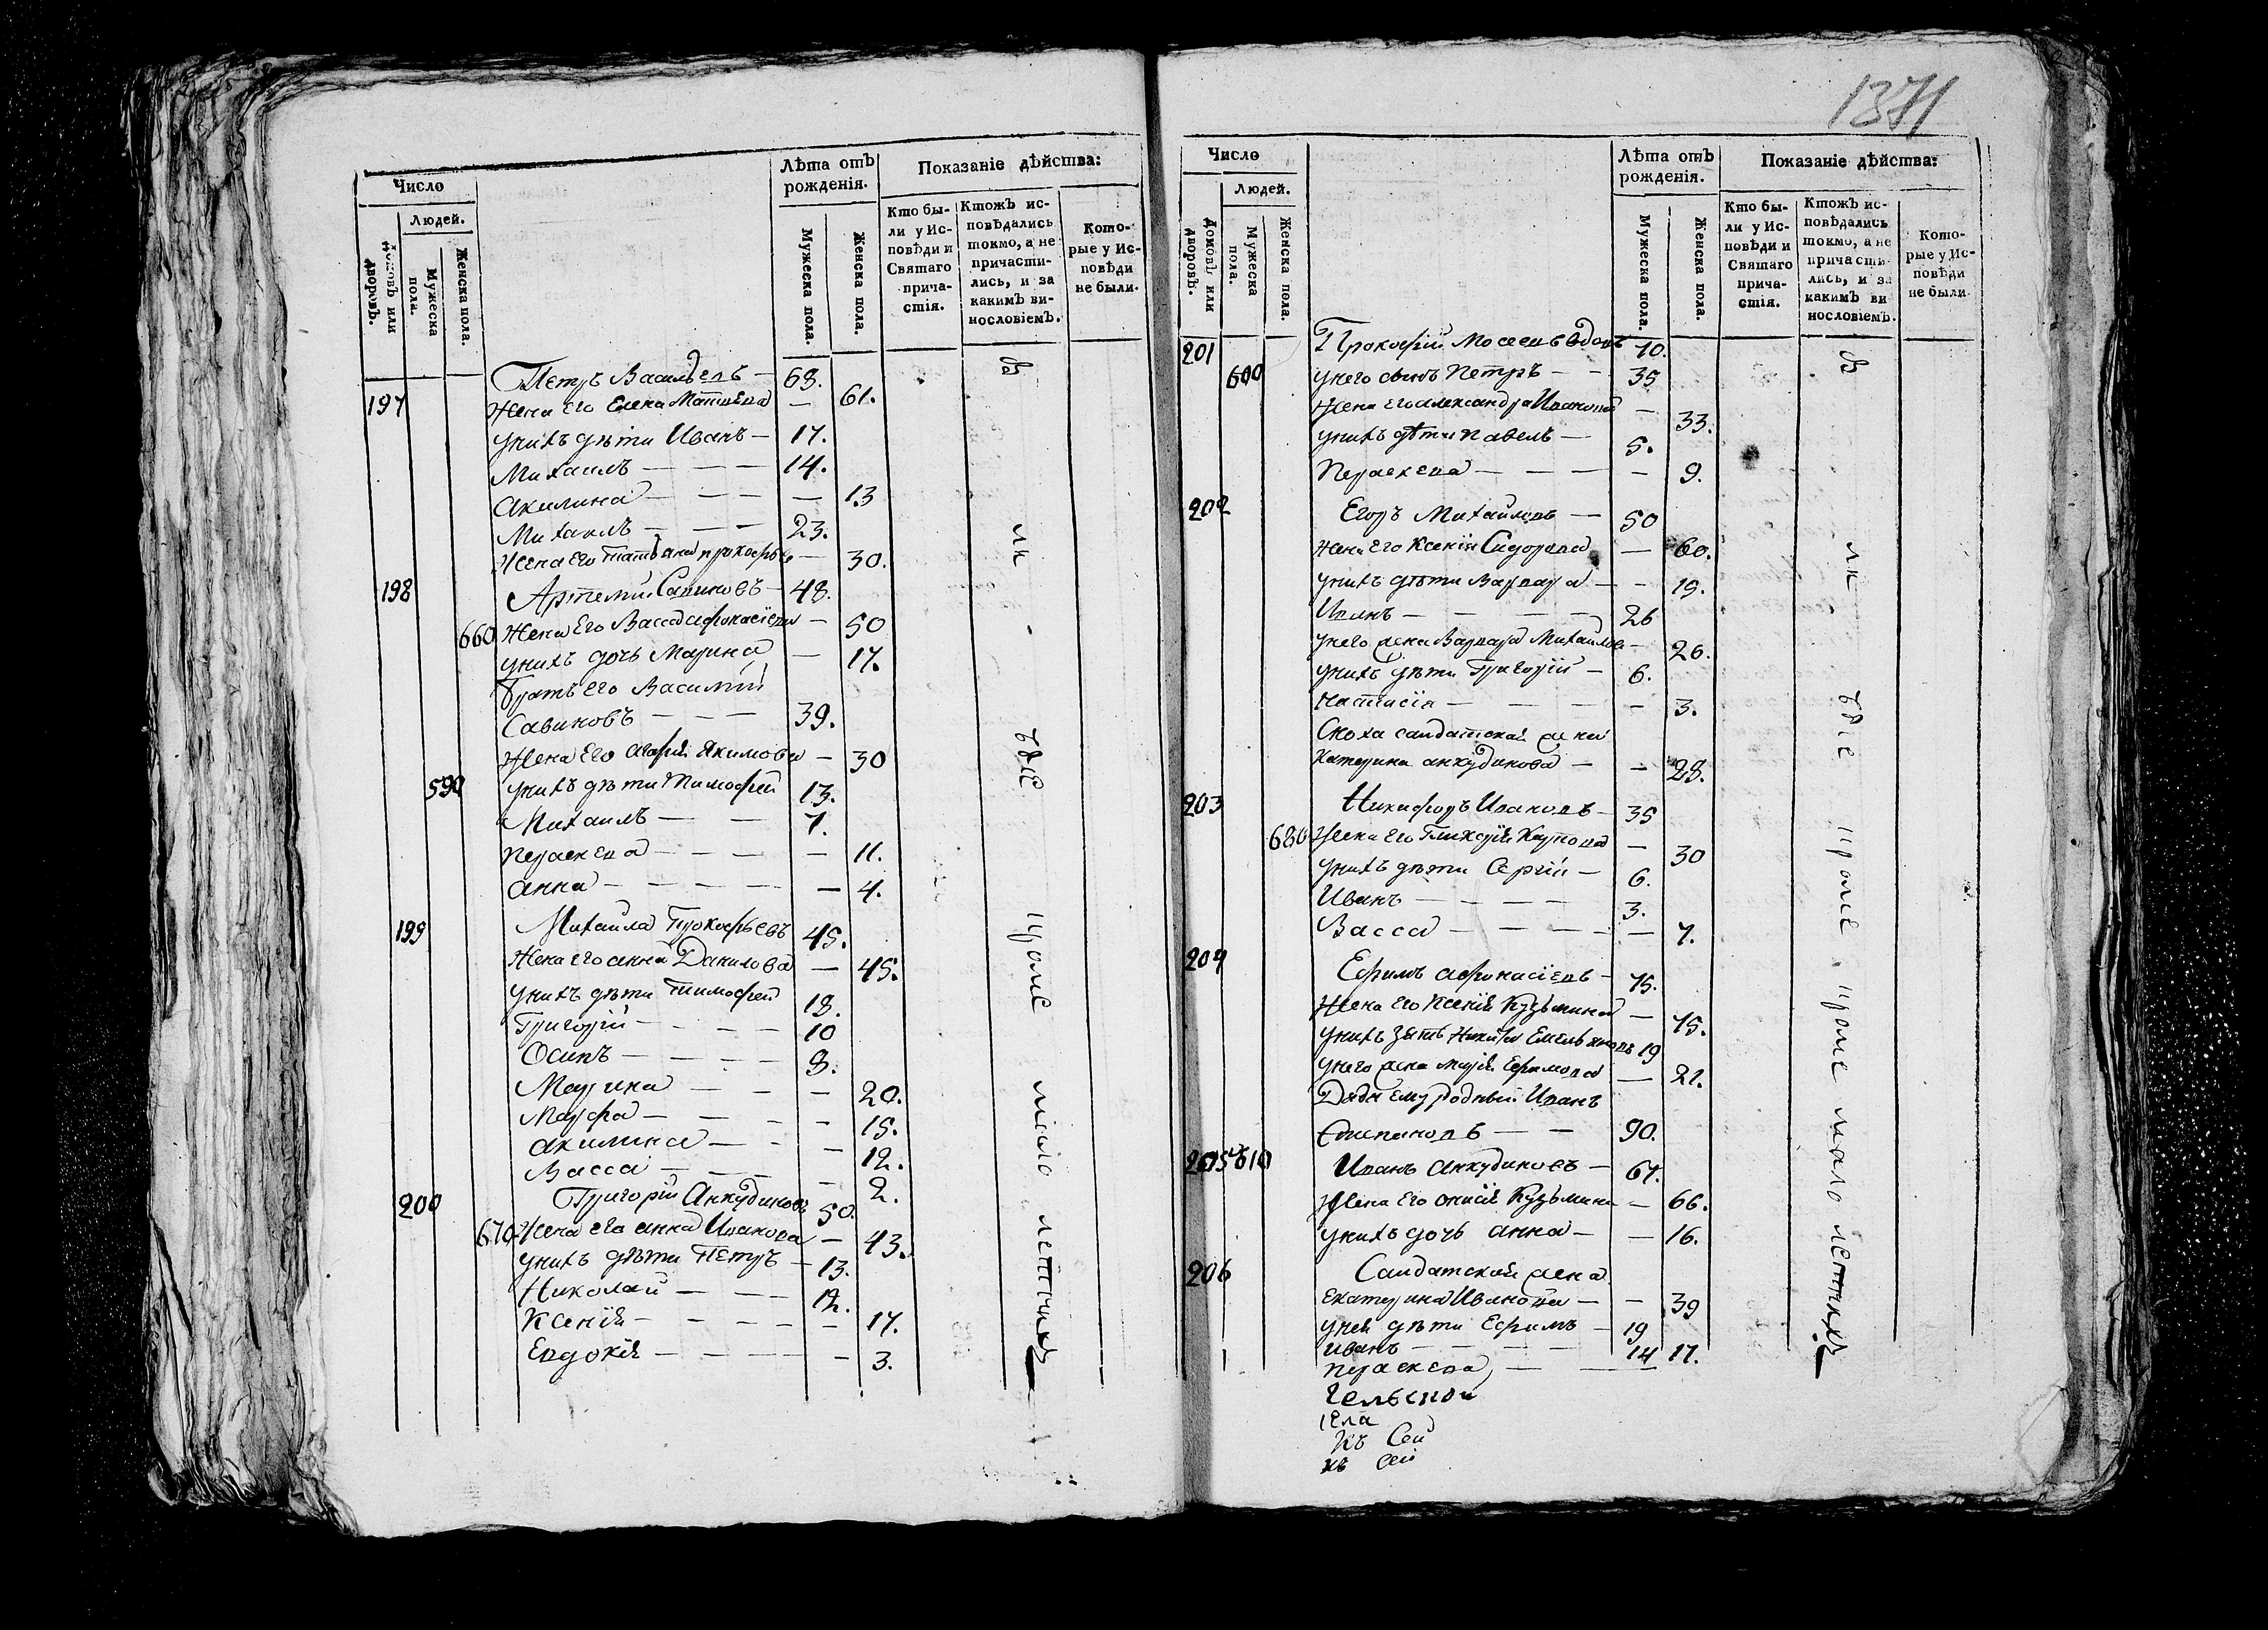 1371
Число
Людей.
Домовъ или дворовъ.
Мужеска пола.
Женска пола.
Лѣта отъ рожденія.
Мужеска пола.
Женска пола.
Показаніе дѣйства:
Кто бы-
ли у Ис-
повѣди и
Святаго
прича-
стія.
Ктожъ ис-
повѣдались
токмо, а не
причасти-
лись, и за
какимъ ви-
нословіемъ.
Кото-
рые у Ис-
повѣди
не были.
197 Петръ Васильевъ — 68.
Жена Его Елена Матвѣева — 61.
унихъ дѣти Иванъ — 17.
Михаилъ — — — 14.
Акилина — — — — 13
Михаилъ — — — 23.
Жена Его Татьяна прокофьева — 30.
198 Артемий Савиновъ — 48.
660 Жена Его Васса афонасіева — 50
унихъ дочь Марина — 17.
Братъ Его Василий
Савиновъ — — — 39.
Жена Его Екимова — 30
590 унихъ дѣти Тимофей 13.
Михаилъ — — 7.
Параскева — — — — 11.
анна — — — — — 4.
199 Михаила Прокофьевъ 45.
Жена его анна Данилова — 45.
унихъ дѣти Тимофей 18.
Григорій — — — — 10
Осипъ — — — — 8.
Марина — — — 20.
Марфа — — — — 15.
акилина — — — 12.
Васса — — — — 2.
200 Григорій Анкудиновъ 50.
670 Жена его анна Иванова — 43.
унихъ дѣти Петръ — 13.
Николай — — — 12.
Ксенія — — — — — 17.
Евдокія — — — — — 3.
всѣ кромѣ мало летныхъ
Число
Людей.
Домовъ или дворовъ.
Мужеска пола.
Женска пола.
Лѣта отъ рожденія.
Мужеска пола.
Женска пола.
Показаніе дѣйства:
Кто бы-
ли у Ис-
повѣди и
Святаго
прича-
стія.
Ктожъ ис-
повѣдались
токмо, а не
причасти-
лись, и за
какимъ ви-
нословіемъ.
Кото-
рые у Ис-
повѣди
не были.
201 Прокофій Мосеевъ вдовъ 70.
600 унего сынъ Петръ — — 35
Жена Его александра Иванова — 33.
унихъ дѣти павелъ — 5.
Параскева — — — — 9.
202 Егоръ Михайловъ — 50
Жена Его Ксенія Сидорова — 60.
унихъ дѣти Варвара — — 19.
Иванъ — — — — 26
унего жена Варвара Михайлова — 26.
унихъ дѣти Григорій — 6.
Настасія — — — — 3.
Сноха салдатская жена
Катерина анкудинова — — 28.
203 Никифоръ Ивановъ — 35
680 Жена Его Гликерія Карпова — 30
унихъ дѣти Сергій — 6.
Иванъ — — — — 3.
Васса — — — — — 7.
204 Ефимъ афонасіевъ — 75.
Жена Его Ксенія Кузьмина — 75.
унихъ зять Никита Емельяновъ 19
унего жена Ефимова — 21.
Дядя ему родный Иванъ
Степановъ — — 90.
205 610 Иванъ Анкудиновъ — 67.
Жена Его Кузьмина — 66.
унихъ дочь анна — — 16.
206 Салдатская жена
Екатерина Иванова — — 39
уней дѣти Ефимъ — 19
Иванъ — — — — 14
Параскева — — — 17.
всѣ кромѣ кромѣ мало летныхъ